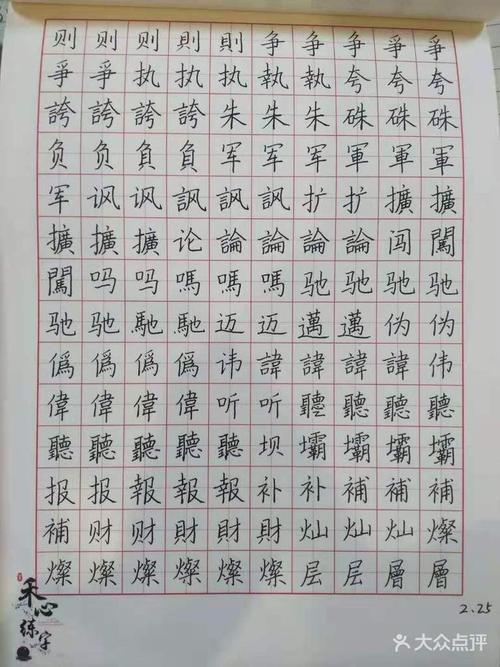 则则则則則争争争爭爭
爭爭执执执執執夸夸夸
誇誇誇誇朱朱朱硃硃硃
负负負負军军军軍軍軍
军讽讽諷諷諷扩扩擴擴
擴擴擴论論論論論闯闖
闖吗吗嗎嗎嗎驰驰驰驰
驰驰馳馳迈迈邁邁伪伪
僞僞僞僞讳諱諱諱諱伟
偉偉偉偉听听聽聽聽聽
聽聽聽聽聽坝壩壩壩壩
报报報報報补补補補補
補财财財財財灿灿灿燦
燦燦燦燦燦层层層層層
禾心练字
2.25
大众点评